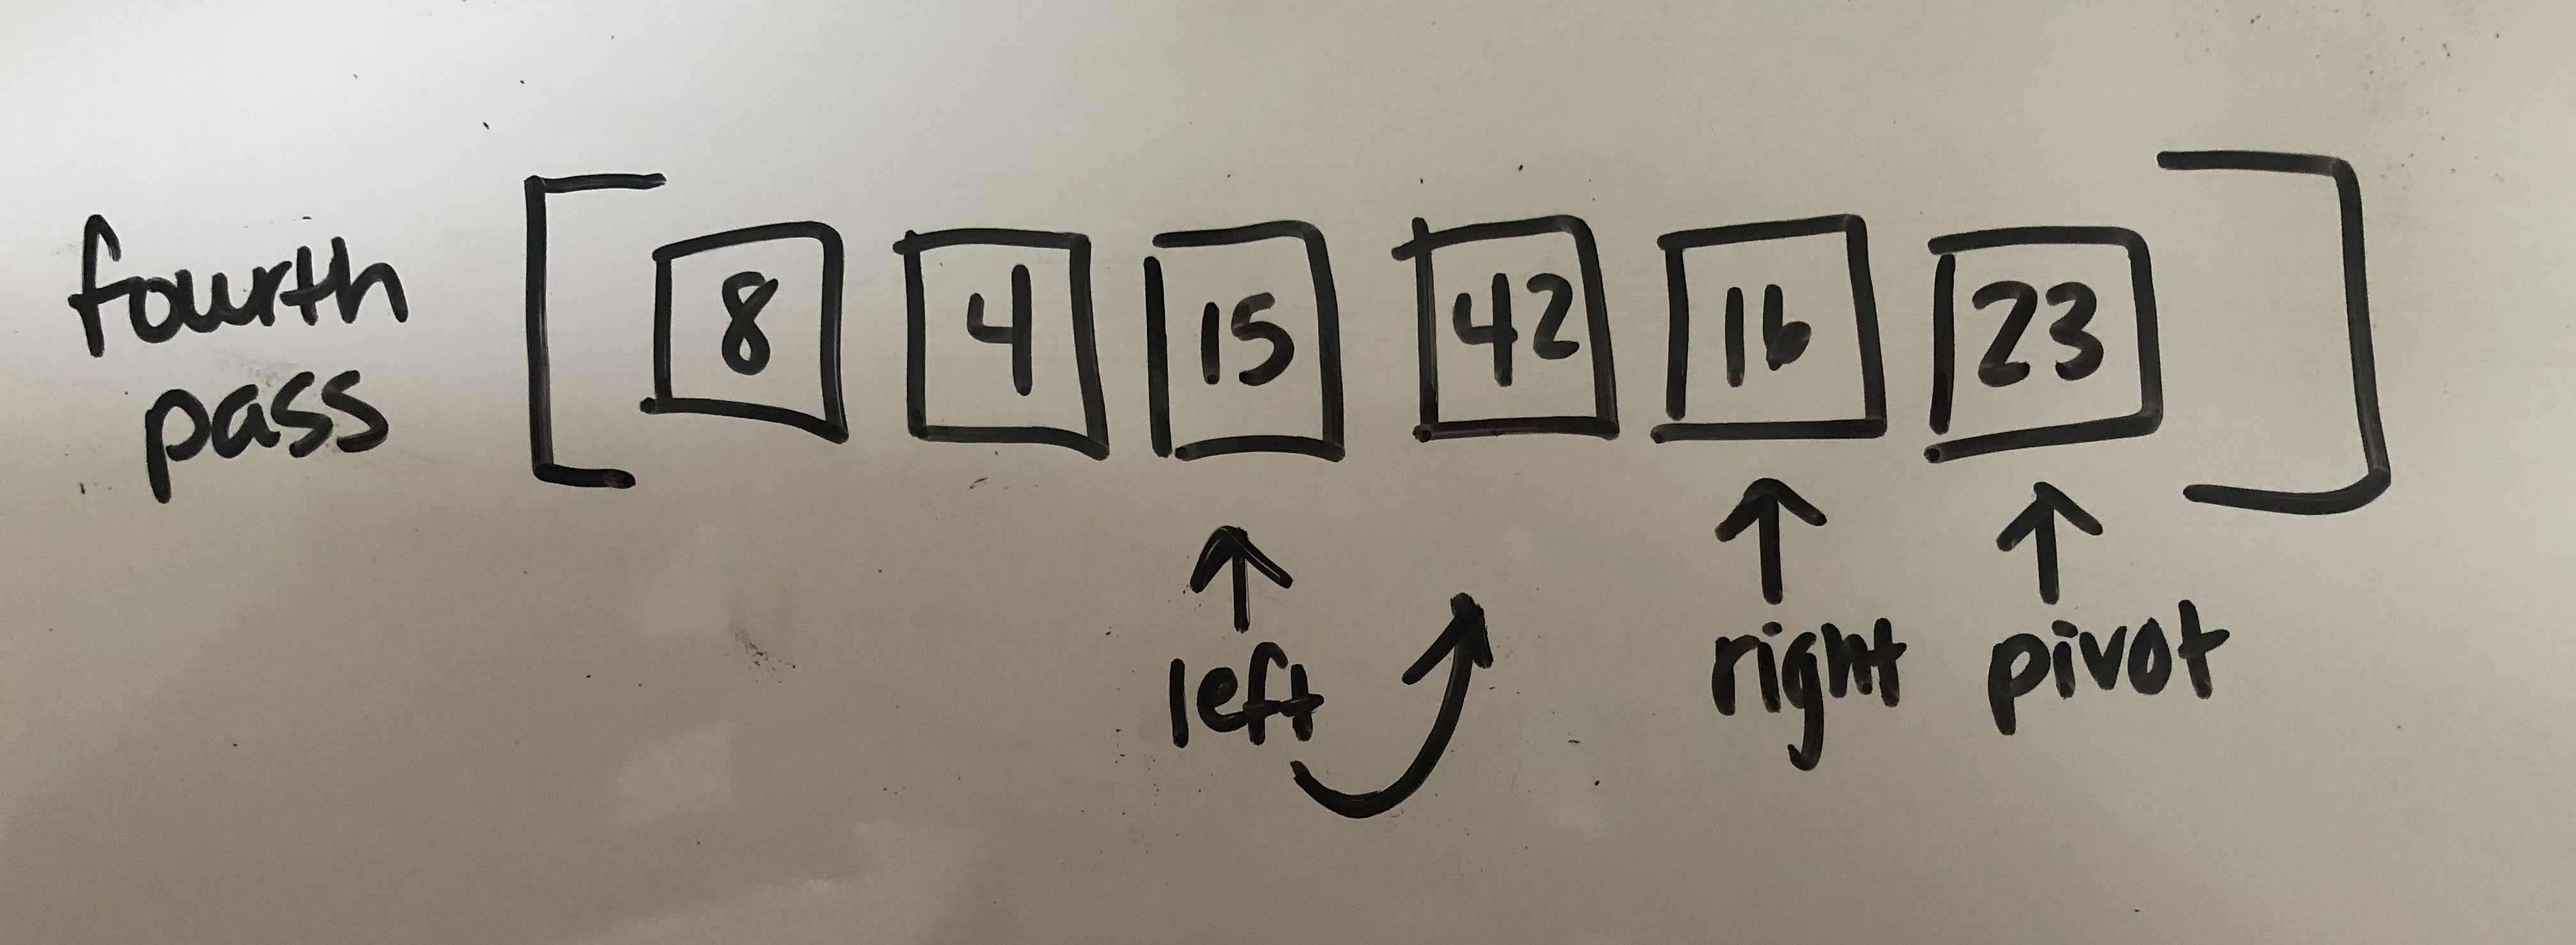 fourth
pass
8 4 15 42 16 23
left right pivot